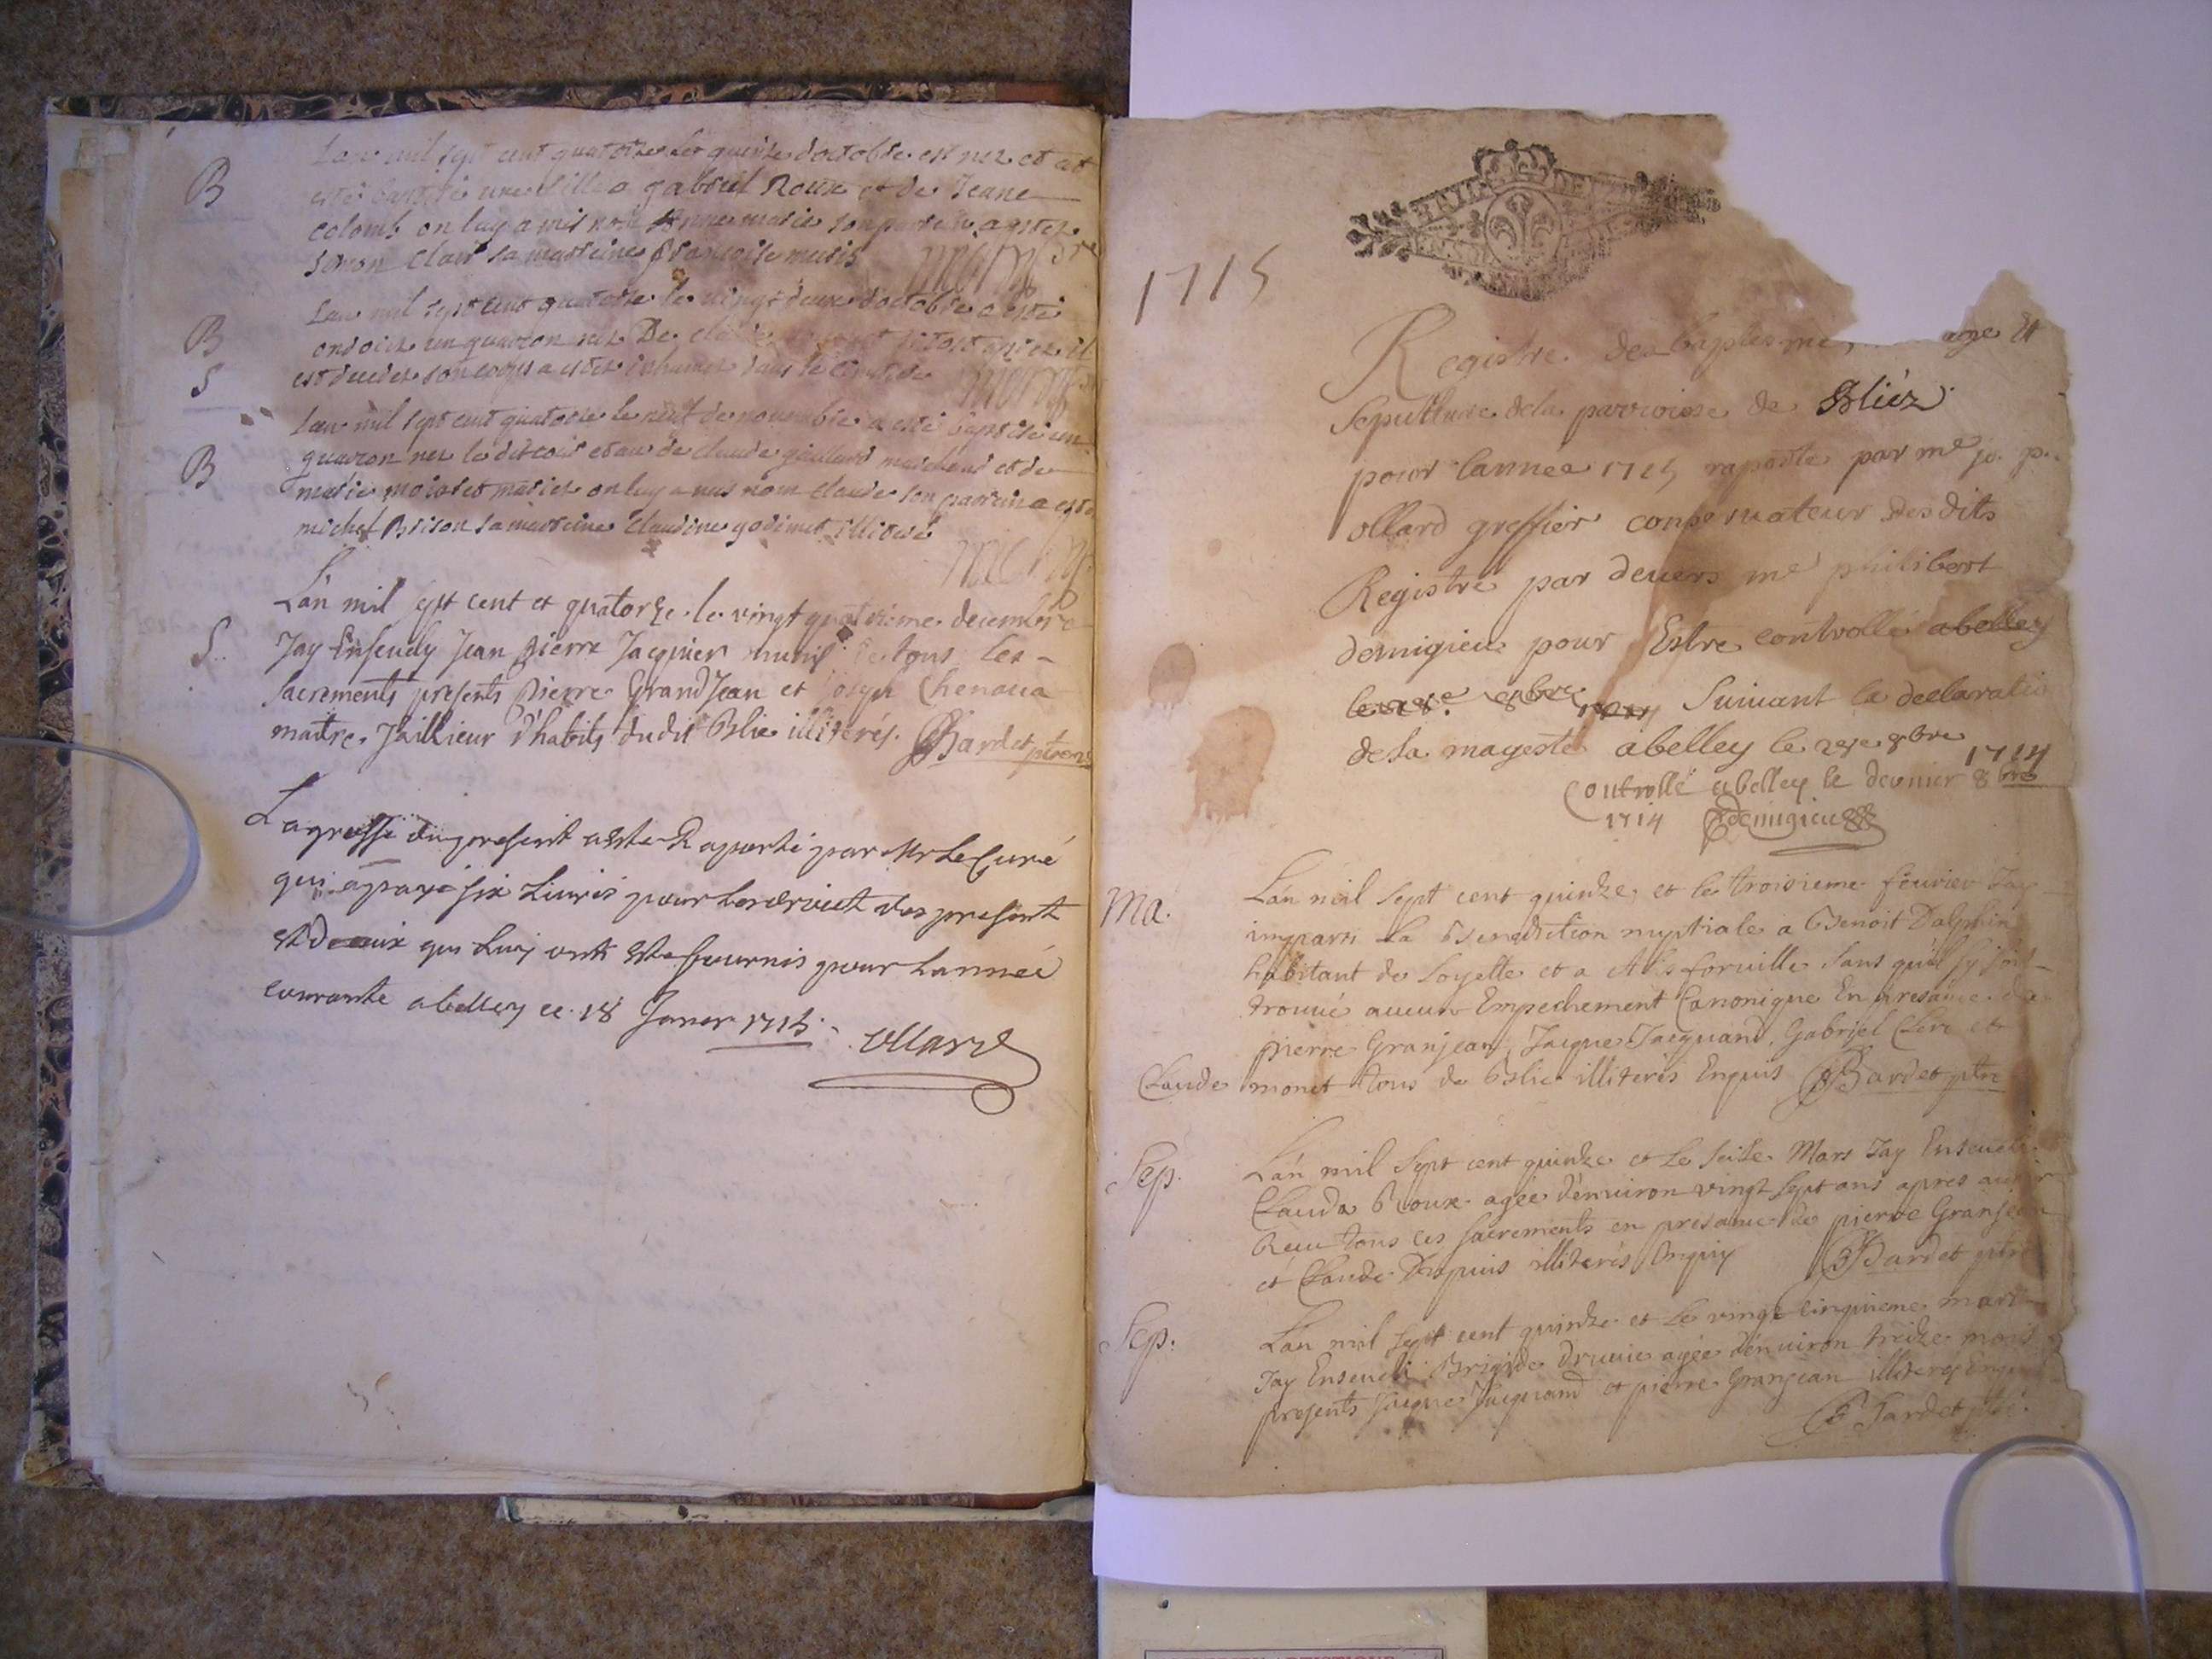 B
Lan mil sept cent quatorze le quinze doctobre est nez et at
esté une fille a gabriel Roux et de Jeane
colomb on luy a mis nom Anne marie son a estez
simon clair sa marreine francoise
B
Lan mil sept cent quatorze le vingt deux doctobre a esté
ondoiez un guarcon nez De
S
est decedez son corps a estez inhumez dans le
B
Lan mil sept cent quatorze le neuf de novembre a esté baptisé un
guarcon nez le de claude marchand et de
marie on luy a mis nom claude son parrein a esté
michel Brison sa marreine claudine godimet illiteré
S.
Lán mil sept cent et quatorze le vingt quatrieme decembre
Jay Enseuely Jean pierre Jacquier muni de tous les
sacrements presents pierre GrandJean et Chenaua
maitre Taillieur d'habits dudit Blie illiterés. Bardet ptre
La grosse du present a este Raporté par Mr Le Curé
qui a payé six Liures pour les droict des present
et de ceux qui Luy ont este fournis pour Lannée
courante a belley ce 18 Janvr 1715. Ollard
1715
Registre des baptesme, age et
Sepulture de la parroisse de Bliéz
pour lannee 1715 raporte par me jo. p.
ollard greffier conseruateur des dits
Registre par deuers me philibert
demigieu pour Estre controllé abelley
le 8bre 1714 Suiuant la declaratio
de sa mageste abelley le 8bre 1714
Controllé abelley le dernier 8bre
1714 Demigieu
Ma.
Lán mil sept cent quinze et le troisieme feurier Jay
imparti La Benediction nuptiale a Benoit Dalphin
habitant de Loyette et a foruille sans quil sy soit
trouué aucun Empechement Canonique En presance de
pierre Granjean, Jaque Jacquand, Gabriel Clerc et
Claude monet tous de Blie illiterés Enquis Bardet ptre
Sep.
Lán mil sept cent quinze et Le seise Mars Jay Enseueli
Clauda Broux agée d'enuiron vingt sept ans apres auoir
Receu tous ces sacrements en presance de pierre Granjean
et Claude Dupuis illiterés Enquis Bardet ptre
Sep.
Lán mil sept cent quinze et Le vingt cinquieme mars
Jay Enseueli Brigide agée denuiron treize mois
presents Jaque Jacquand et pierre Granjean illiterés
Bardet ptre